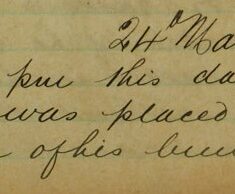 24th Ma
pm this da
was placed
of his bun